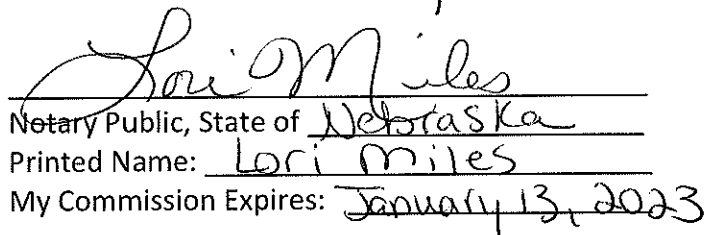 Lori Miles
Notary Public, State of Nebraska
Printed Name: Lori Miles
My Commission Expires: January 13, 2023